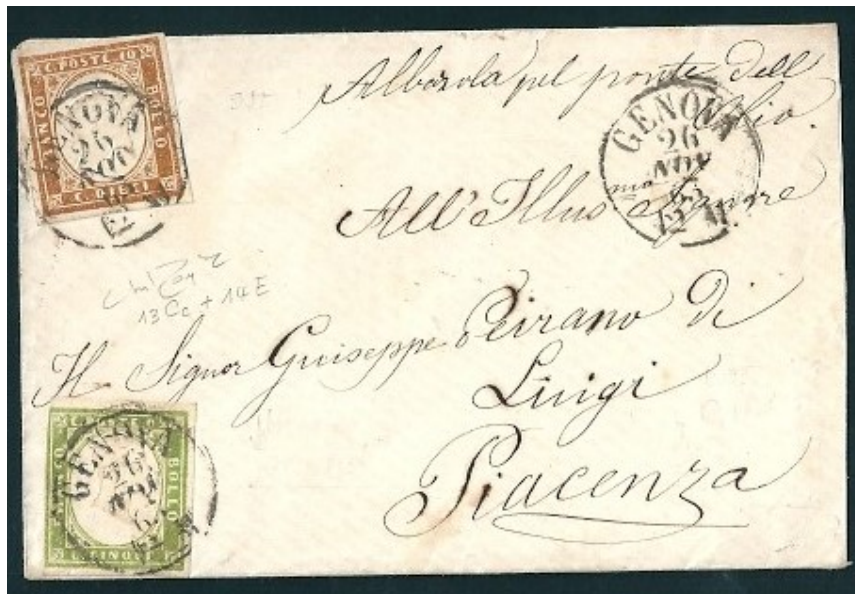 C. POSTE 10
FRANCO
BOLLO
C. DIECI
GENOVA
26
NOV
12 M
pel ponte dell
GENOVA
26
NOV
12 M
All' Illus.mo Signore
13Cc + 14E
Il Signor Giuseppe Peirano di
Luigi
Piacenza
BOLLO
C. CINQUE
GENOVA
26
NOV